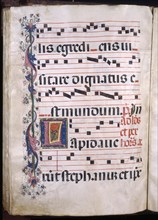 lis egrediens ui
sitare dignatus e
st mundum
Lapidaue
runt stephanum et ipse